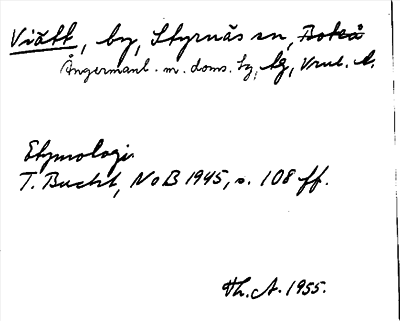 Viätt, by, Styrnäs sn, Boteå
Ångermanl. m. doms. tg, Ag,
Etymologi.
T. Bucht, NoB 1945, s. 108 ff.
Th. A. 1955.